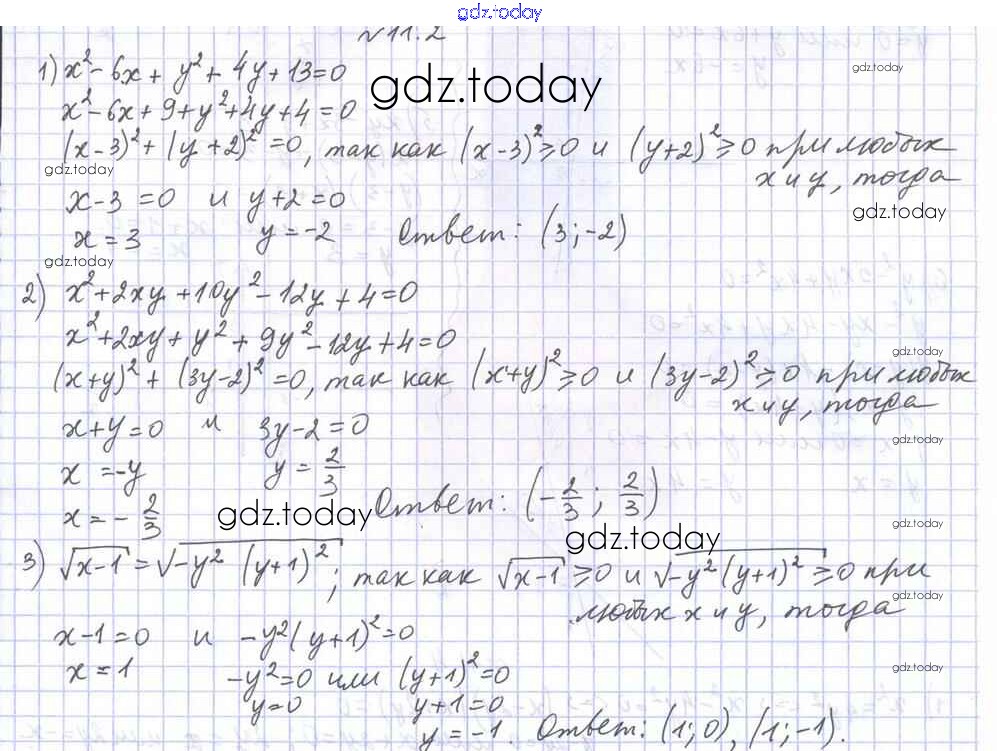 gdz.today
№11.2
1) x² - 6x + y² + 4y + 13 = 0
gdz.today
gdz.today
x² - 6x + 9 + y² + 4y + 4 = 0
(x-3)² + (y+2)² = 0, так как (x-3)² ≥ 0 и (y+2)² ≥ 0 при любых
gdz.today
x и y, тогда
x-3 = 0 и y+2 = 0
gdz.today
x = 3 y = -2 Ответ: (3; -2)
gdz.today
2) x² + 2xy + 10y² - 12y + 4 = 0
x² + 2xy + y² + 9y² - 12y + 4 = 0
gdz.today
(x+y)² + (3y-2)² = 0, так как (x+y)² ≥ 0 и (3y-2)² ≥ 0 при любых
x и y, тогда
x+y = 0 и 3y-2 = 0
gdz.today
x = -y y = 2/3
x = -2/3 Ответ: (-2/3; 2/3)
gdz.today
gdz.today
gdz.today
3) √(x-1) = √(-y² (y+1)²); так как √(x-1) ≥ 0 и √(-y² (y+1)²) ≥ 0 при
gdz.today
любых x и y, тогда
x-1 = 0 и -y²(y+1)² = 0
x = 1 -y² = 0 или (y+1)² = 0
gdz.today
y = 0 y+1 = 0
y = -1. Ответ: (1; 0), (1; -1).